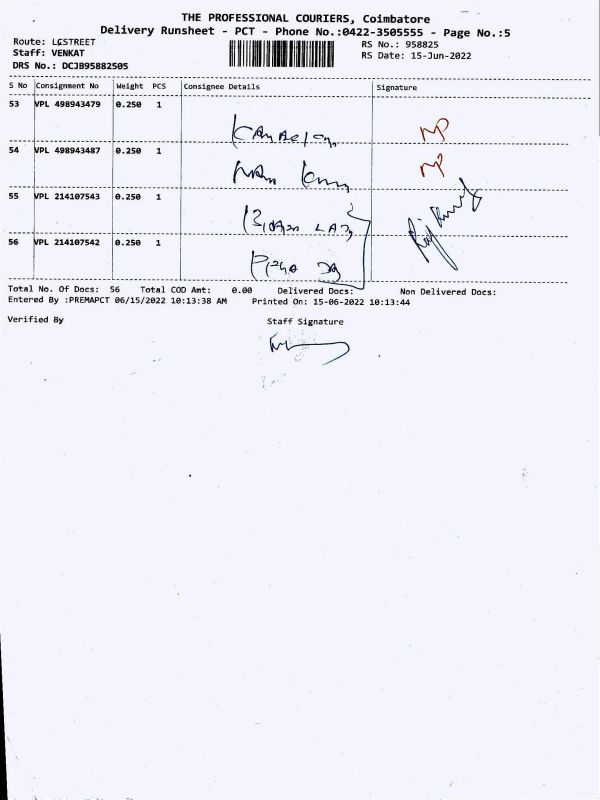 THE PROFESSIONAL COURIERS, Coimbatore
Delivery Runsheet - PCT - Phone No.:0422-3505555 - Page No.:5
Route: LCSTREET
Staff: VENKAT
DRS No.: DCJB95882505
RS No.: 958825
RS Date: 15-Jun-2022
S No Consignment No Weight PCS Consignee Details Signature
53 VPL 498943479 0.250 1
54 VPL 498943487 0.250 1
55 VPL 214107543 0.250 1
56 VPL 214107542 0.250 1
Total No. Of Docs: 56 Total COD Amt: 0.00 Delivered Docs: Non Delivered Docs:
Entered By :PREMAPCT 06/15/2022 10:13:38 AM Printed On: 15-06-2022 10:13:44
Verified By Staff Signature